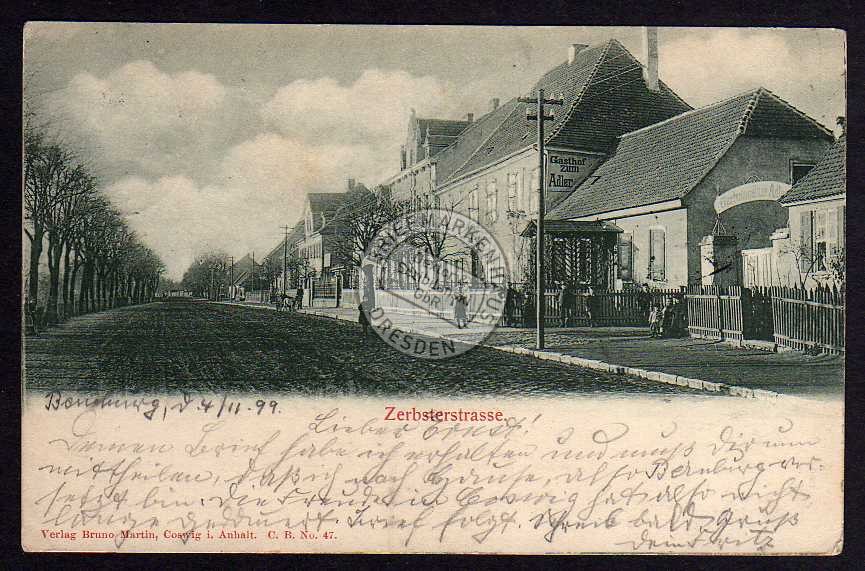 Gasthof
zum
Adler
BRIEFMARKENHAUS
DRESDEN
Bernburg, d. 4/11. 99.
Zerbsterstrasse.
Lieber Ernst!
Deinen Brief habe ich erhalten und muß Dir nun
mitteilen, daß ich nach Hause, also Bernburg ver-
setzt bin. Die Freude in Coswig hat also nicht
lange gedauert. Brief folgt. Schreib bald. Gruß
Dein Fritz
Verlag Bruno Martin, Coswig i. Anhalt. C. B. No. 47.